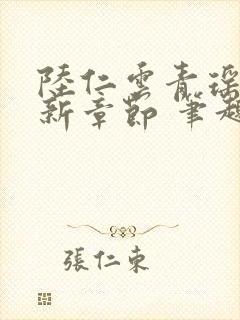 陸仁雲青瑶
新章節 筆趣
張仁東